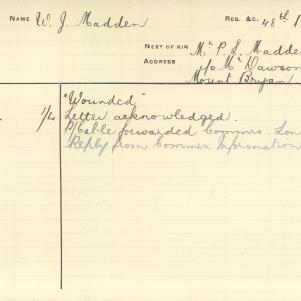 NAME W. J. Madden
REG. &C. 48th
NEXT OF KIN Mr P. L. Madde
ADDRESS c/o Mr Dawson
Mount Bryan
"Wounded"
1/4 Letter acknowledged.
P/Cable forwarded Commrs. Lon
Reply from Commrs. Information